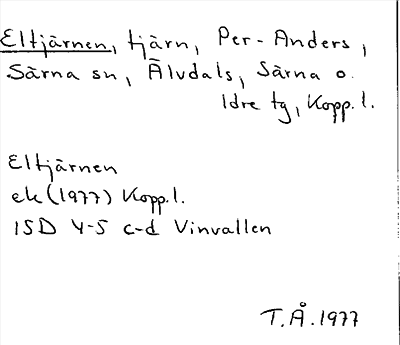 Eltjärnen, tjärn, Per-Anders,
Särna sn, Älvdals, Särna o.
Idre tg, Kopp. l.
Eltjärnen
ek (1977) Kopp. l.
15D 4-5 c-d Vinvallen
T.Å. 1977